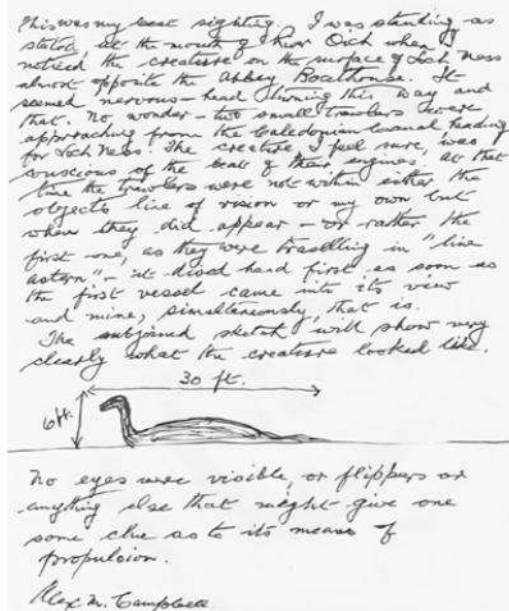 This was my best sighting. I was standing, as
stated, at the mouth of River Oich when I
noticed the creature on the surface of Loch Ness
almost opposite the Abbey Boathouse. It
seemed nervous - head turning this way and
that. No wonder - two small trawlers were
approaching from the Caledonian Canal heading
for Loch Ness. The creature, I feel sure, was
conscious of the beat of their engines. At that
time the trawlers were not within either the
objects line of vision or my own but
when they did appear - or rather the
first one, as they were travelling in "line
astern" - it dived head first as soon as
the first vessel came into its view
and mine, simultaneously, that is.
The subjoined sketch will show very
clearly what the creature looked like.
30 ft.
6 ft.
No eyes were visible, or flippers or
anything else that might give one
some clue as to its means of
propulsion.
Alex M. Campbell